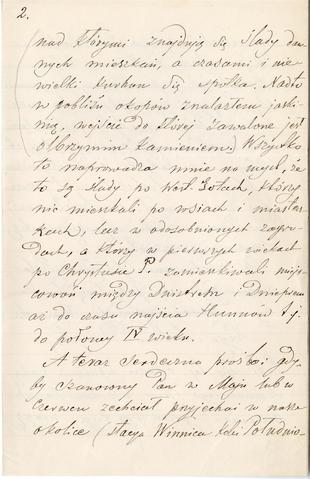 2.
nad którymi znajdują się ślady daw
nych mieszkań, a czasami i nie
wielki kurhan się spotka. Nadto
w pobliżu okopów znalazłem jaski
nię, wejście do której zawalone jest
olbrzymim kamieniem. Wszystko
to naprowadza mnie na myśl, że
to są ślady po West. Gotach, którzy
nie mieszkali po wsiach i miastecz
kach, lecz w odosobnionych zagro
dach, a którzy w pierwszych wiekach
po Chrystusie P. zamieszkiwali miejs
cowość między Dniestrem i Dnieprem
aż do czasu najścia Hunnów t. j.
do połowy IV wieku.
A teraz serdeczna prośba: gdy
by Szanowny Pan w Maju lub w
Czerwcu zechciał przyjechać w nasze
okolice (stacya Winnica kolei Południo-